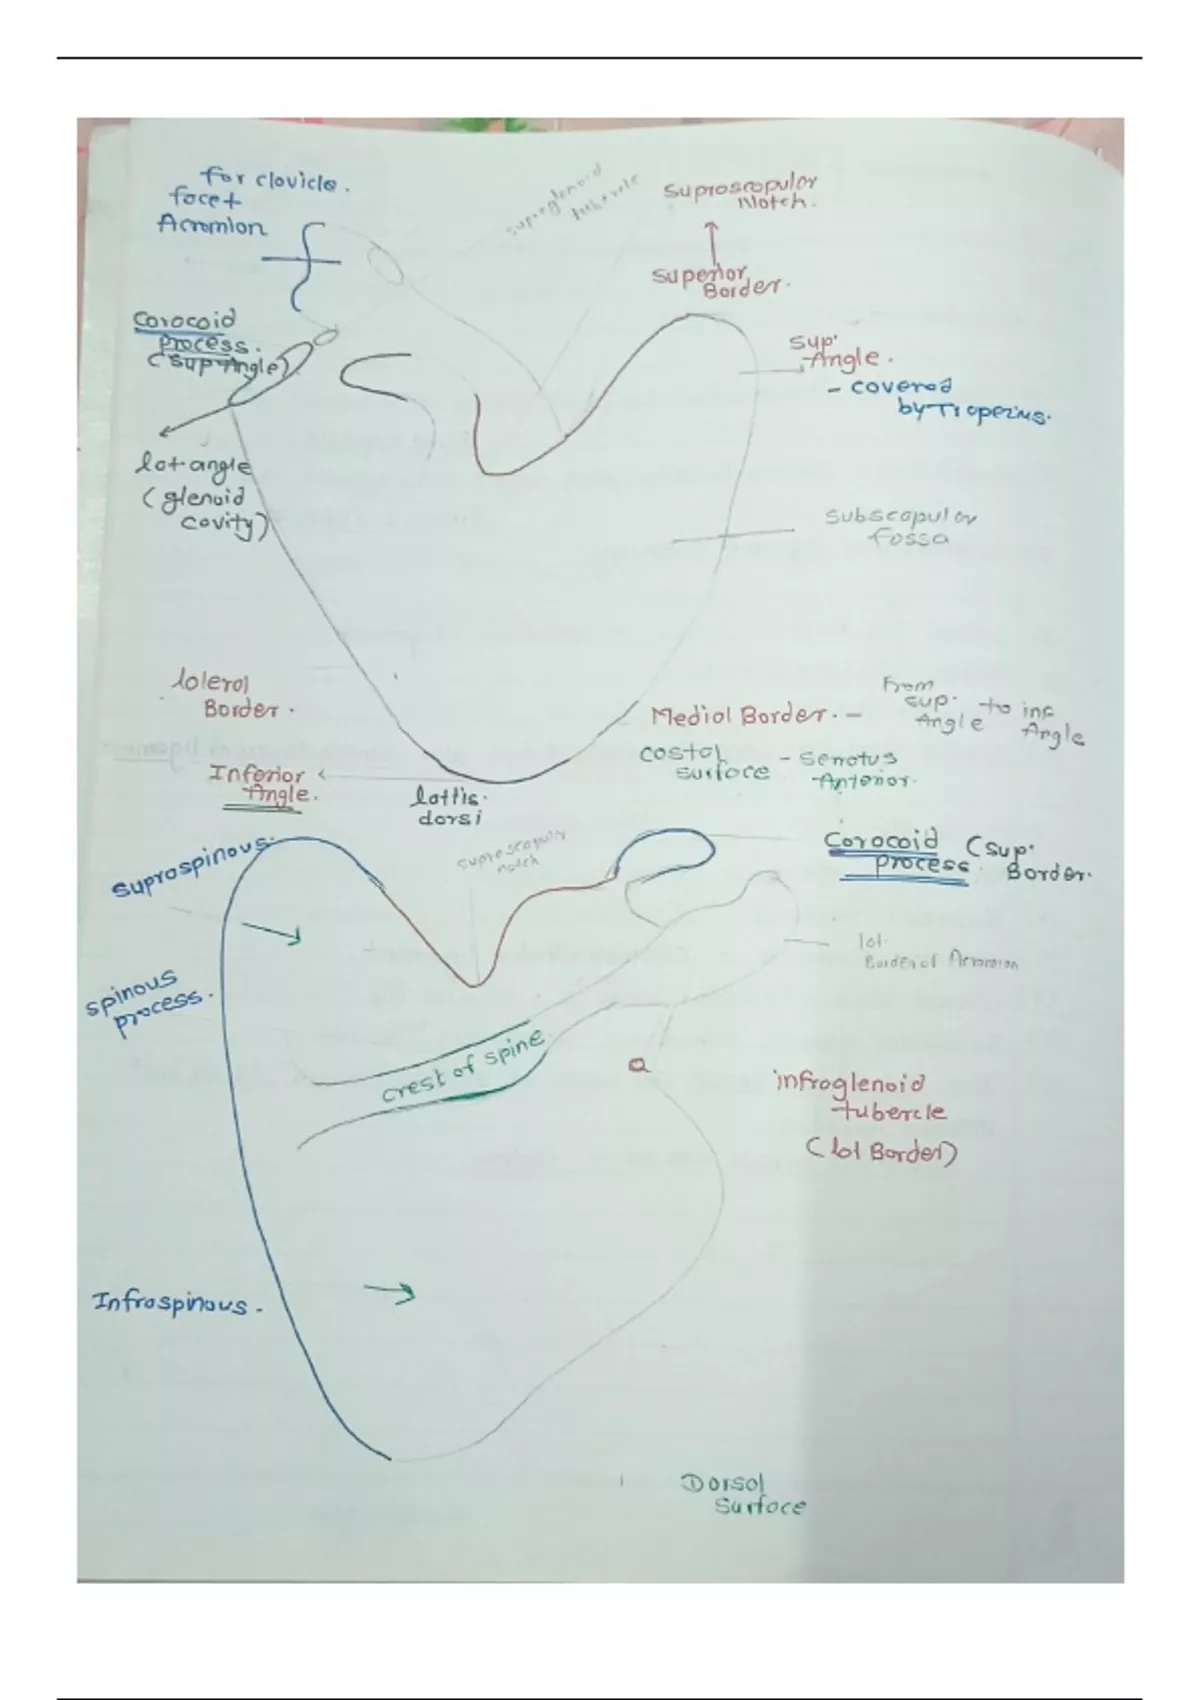 for clovicle.
facet
Acromion
supraglenoid
tubercle
suproscopulor
Notch.
superior
Border.
corocoid
process.
(sup Angle)
sup.
Angle.
- covered
by Tropezius.
lot angle
(glenoid
covity)
subscapulor
fossa
loterol
Border.
Mediol Border. -
From
sup. to inf
Angle Angle
costol
surface
- serratus
Anterior.
Inferior
Angle.
lattis.
dorsi
suproscopulor
notch
suprospinous.
corocoid (sup.
process. Border.
lot.
Border of Acromion
spinous
process.
crest of spine
infroglenoid
tubercle
(lot Border)
Infrospinous.
Dorsol
surface